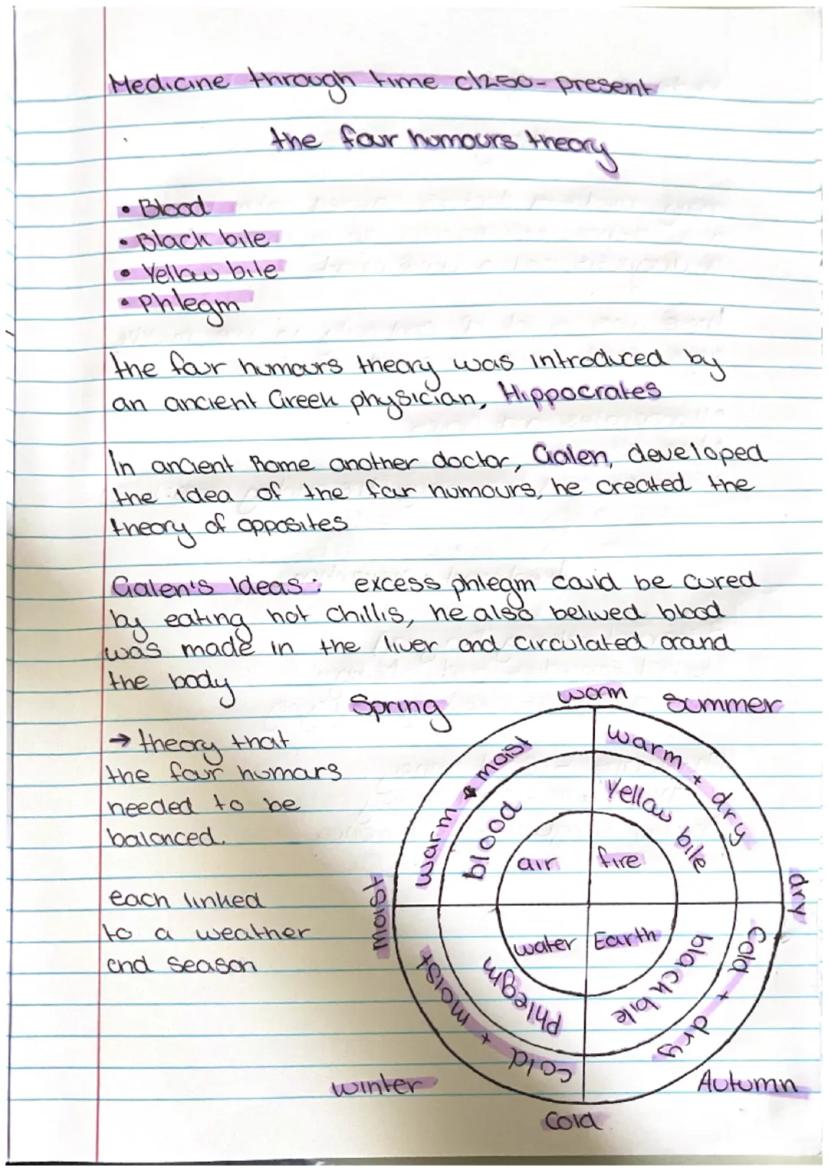 Medicine through time c1250-present
the four humours theory
• Blood
• Black bile
• Yellow bile
• Phlegm
the four humours theory was introduced by
an ancient Greek physician, Hippocrates
In ancient Rome another doctor, Galen, developed
the idea of the four humours, he created the
theory of opposites
Galen's Ideas: excess phlegm could be cured
by eating hot chillis, he also belived blood
was made in the liver and circulated around
the body
Spring warm summer
→ theory that
the four humours
needed to be
balanced.
each linked
to a weather
and season
warm + moist
warm + dry
blood
Yellow bile
air fire
moist
dry
water Earth
Phlegm
black bile
cold + moist
cold + dry
winter
Autumn
Cold